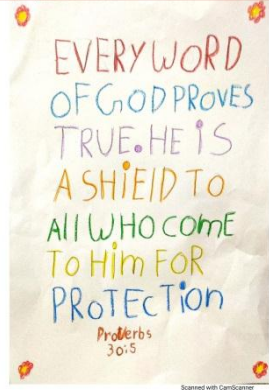 EVERY WORD
OF GOD PROVES
TRUE. HE iS
A SHiElD TO
All WHO COME
TO HiM FOR
PROTECTiON
Proverbs
30:5
Scanned with CamScanner